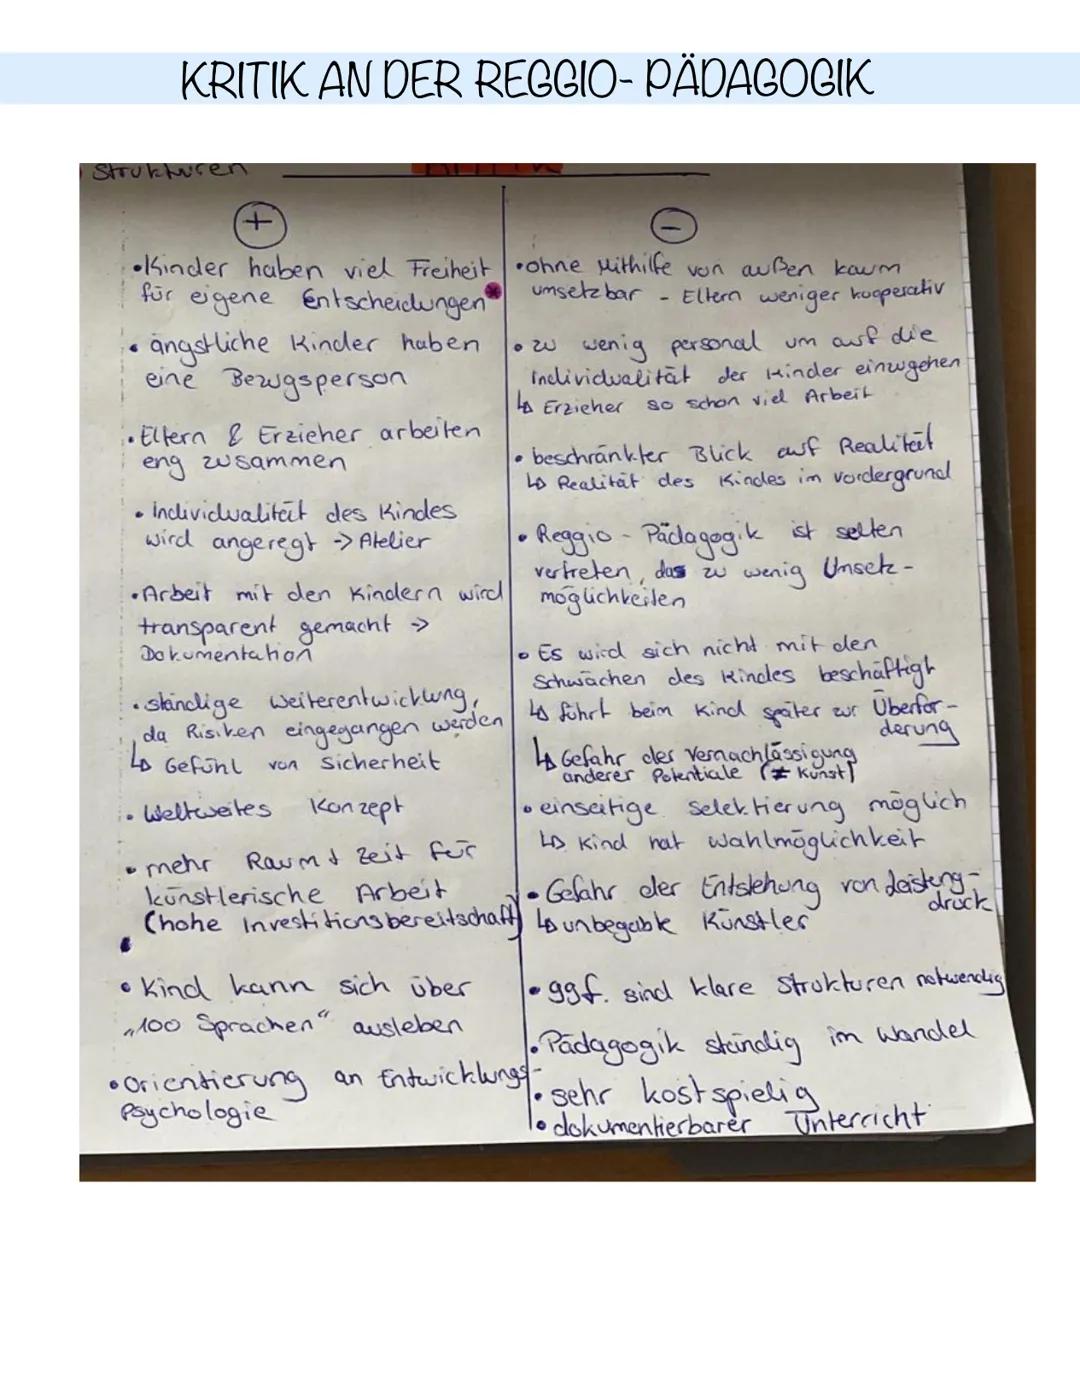 KRITIK AN DER REGGIO- PÄDAGOGIK
Strukturen
KRITIK
+
•Kinder haben viel Freiheit
für eigene Entscheidungen*
• ängstliche Kinder haben
eine Bezugsperson
• Eltern & Erzieher arbeiten
eng zusammen
• Individualität des Kindes
wird angeregt -> Atelier
•Arbeit mit den Kindern wird
transparent gemacht ->
Dokumentation
• ständige Weiterentwicklung,
da Risiken eingegangen werden
↳ Gefühl von Sicherheit
• Weltweites Konzept
• mehr Raum + Zeit für
künstlerische Arbeit
(hohe Investitionsbereitschaft)
•
• Kind kann sich über
„100 Sprachen“ ausleben
• Orientierung an Entwicklungs-
Psychologie
-
•ohne Mithilfe von außen kaum
umsetzbar - Eltern weniger kooperativ
• zu wenig personal um auf die
Individualität der Kinder einzugehen
↳ Erzieher so schon viel Arbeit
• beschränkter Blick auf Realität
↳ Realität des Kindes im vordergrund
• Reggio - Pädagogik ist selten
vertreten, das zu wenig Umsetz-
möglichkeiten
• Es wird sich nicht mit den
Schwächen des Kindes beschäftigt
↳ führt beim Kind später zur Überfor-
derung
↳ Gefahr der Vernachlässigung
anderer Potentiale (≠ Kunst)
• einseitige Selektierung möglich
↳ Kind hat Wahlmöglichkeit
• Gefahr der Entstehung von Leistung-
druck
↳ unbegabte Künstler
• ggf. sind klare Strukturen notwendig
• Pädagogik ständig im Wandel
• sehr kostspielig
• dokumentierbarer Unterricht